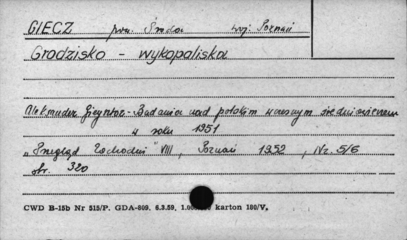 GIECZ pow. Środa woj. Poznań
Grodzisko - wykopaliska
Aleksander Gieysztor - Badania nad polskim wczesnym średniowieczem
w roku 1951
"Przegląd Zachodni" VIII, Poznań 1952, Nr. 5/6
str. 320
CWD B-15b Nr 515/P. GDA-809. 6.3.59. karton 180/V.